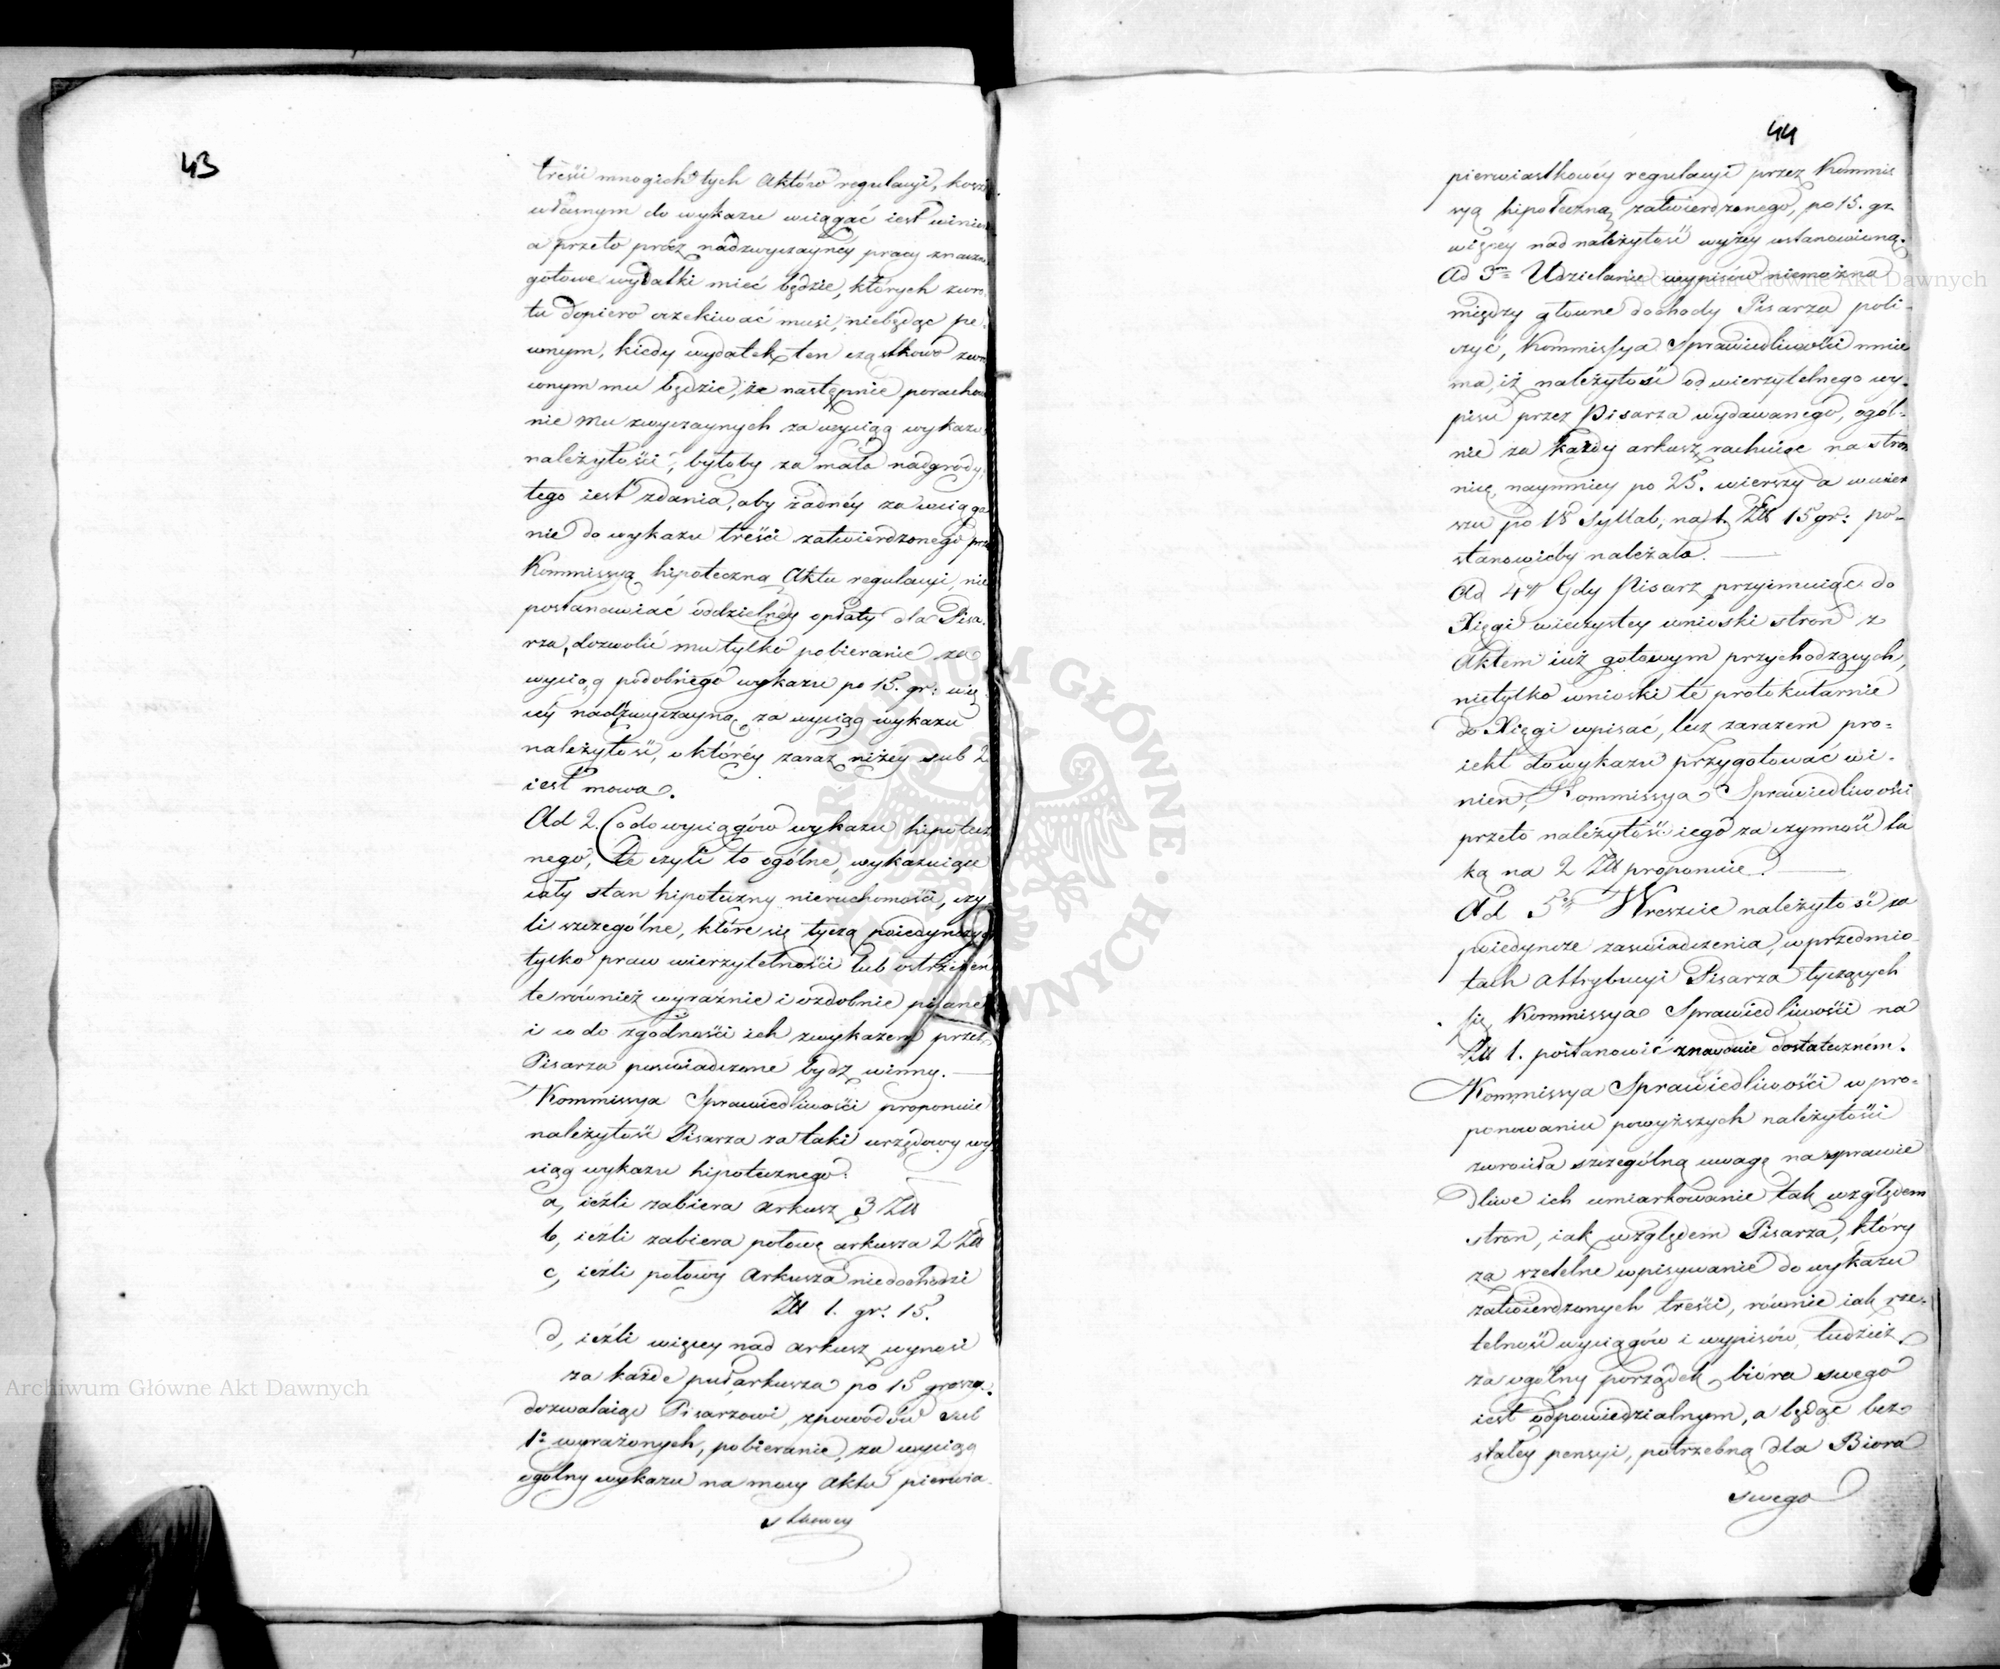 43
treści mnogich tych Aktów regulacyi, kosz
własnym do wykazu wciągać iest winien
a przeto prócz nadzwyczaynéy pracy znaczne
gotowe wydatki mieć będzie, których zwro
tu dopiero oczekiwać musi, niebędąc pe-
wnym, kiedy wydatek ten cząstkowo zwró
conym mu będzie, że następnie porachowa
nie mu zwyczaynych za wyciąg wykazu
należytości, byłoby za mało nadgrody,
tego iest zdania, aby żadnéy za wciąga
nie do wykazu treści zatwierdzonego prze
Kommissyą hipoteczną Aktu regulacyi, nie
postanawiać oddzielnéy opłaty dla Pisa-
rza, dozwolić mu tylko pobieranie za
wyciąg podobnego wykazu po 15. gr: wię
céy nadzwyczayną za wyciąg wykazu
należytość, o któréy zaraz niżéy sub 2
iest mowa.
Ad 2. Co do wyciągów wykazu hipotecz
nego, te czyli to ogólne, wykazuiące
cały stan hipoteczny nieruchomości, czy
li szczególne, które się tyczą poiedynczych
tylko praw wierzytelności lub ostrzeżeń
te również wyraźnie i ozdobnie pisane
i co do zgodności ich z wykazem przez
Pisarza poświadczone bydź winny. —
Kommissya Sprawiedliwości proponuie
należytość Pisarza za taki urzędowy wy
ciąg wykazu hipotecznego.
a, ieźli zabiera arkusz 3 Zł
b, ieźli zabiera połowę arkusza 2 Zł
c, ieźli połowy Arkusza nie dochodzi
Zł 1. gr. 15.
d, ieźli więcey nad arkusz wynosi
za każde pułarkusza po 15 groszy.
dozwalaiąc Pisarzowi, z powodów sub
1º wyrażonych, pobieranie, za wyciąg
ogólny wykazu na mocy Aktu pierwia-
stkowey
44
pierwiastkowéy regulacyi przez Kommis
syą hipoteczną zatwierdzonego, po 15. gr.
więcéy nad należytość wyżey ustanowioną.
Ad 3m Udzielanie wypisów niemożna
między główne dochody Pisarza poli-
czyć, Kommissya Sprawiedliwości mnie
ma, iż należytość od wierzytelnego wy-
pisu przez Pisarza wydawanego, ogól-
nie za każdy arkusz rachuiąc na stron
nicę naymniey po 25. wierszy a w wier
szu po 18 syllab, na 1. Zł 15 gr: po-
stanowićby należało. —
Ad 4m Gdy Pisarz przyimuiąc do
Xięgi wieczystey wnioski stron z
Aktem iuż gotowym przychodzących,
nietylko wnioski te protokularnie
do Xięgi wpisać, lecz zarazem pro-
iekt do wykazu przygotować wi-
nien, Kommissya Sprawiedliwości
przeto należytość iego za czynność ta
ką na 2 Zł proponuie. —
Ad 5m Wreszcie należytość za
poiedyncze zaświadczenia, w przedmio-
tach Attrybucyi Pisarza tyczących
się Kommissya Sprawiedliwości na
Zł 1. postanowić znayduie dostateczném.
Kommissya Sprawiedliwości w pro-
ponowaniu powyższych należytości
zwróciła szczególną uwagę na sprawie
dliwe ich umiarkowanie tak względem
stron, iak względem Pisarza, który
za rzetelne wpisywanie do wykazu
zatwierdzonych treści, równie iak rze-
telność wyciągów i wypisów, tudzież
za ogólny porządek bióra swego
iest odpowiedzialnym, a będąc bez
stałey pensyi, potrzebną dla Biora
swego
Archiwum Główne Akt Dawnych
Archiwum Główne Akt Dawnych
ARCHIWUM GŁÓWNE · AKT DAWNYCH ·